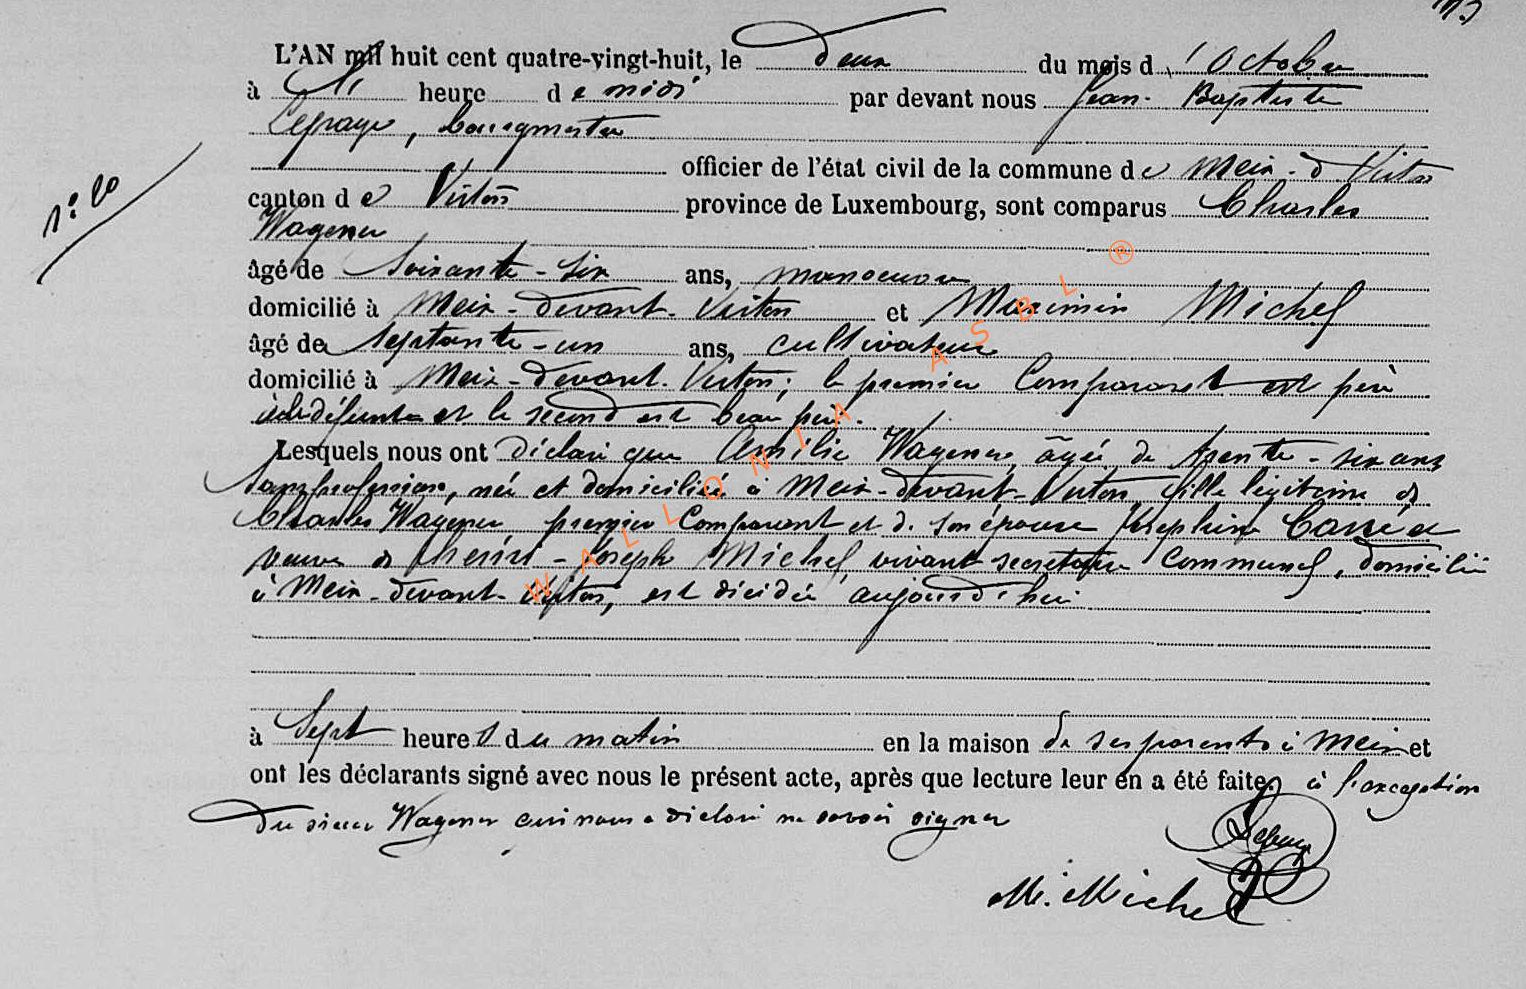 L'AN mil huit cent quatre-vingt-huit, le deux du mois d'Octobre
à heure de midi par devant nous Jean Baptiste
Lepage, bourgmestre
officier de l'état civil de la commune de Meix-d-Virton
N° 20
canton de Virton province de Luxembourg, sont comparus Charles
Wagener
âgé de soixante-six ans, manoeuvre
domicilié à Meix-devant-Virton et Maximin Michel
âgé de septante-un ans, cultivateur
domicilié à Meix-devant-Virton; le premier Comparant est père
de la défunte et le second est beau père.
Lesquels nous ont déclaré que Amélie Wagener, âgée de trente-six ans
sans profession, née et domiciliée à Meix-devant-Virton, fille légitime de
Charles Wagener premier Comparant et de son épouse Joséphine
veuve de henri-Joseph Michel, vivant secrétaire Communal, domiciliée
à Meix-devant-Virton, est décédée aujourd'hui
à Sept heures du matin en la maison de ses parents à Meix et
ont les déclarants signé avec nous le présent acte, après que lecture leur en a été faite, à l'exception
du sieur Wagener qui nous a déclaré ne savoir signer
Lepage
M. Michel
WALLONIA ASBL ®